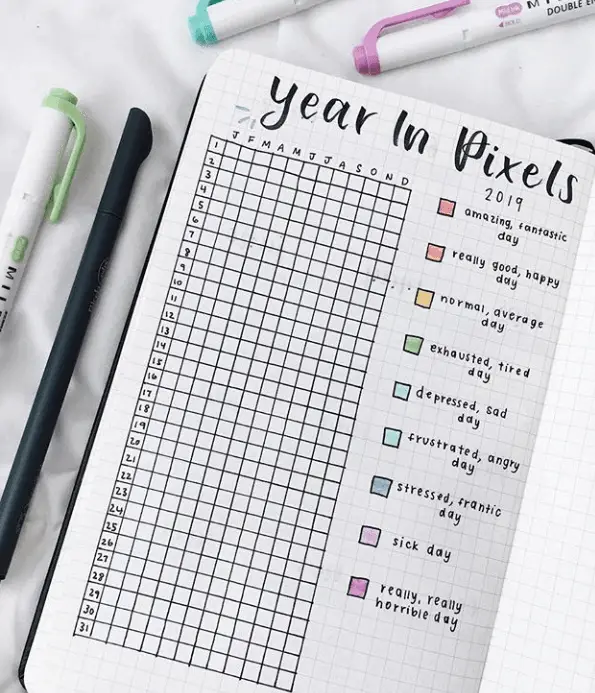 Year In Pixels
2019
J F M A M J J A S O N D
1
2
3
4
5
6
7
8
9
10
11
12
13
14
15
16
17
18
19
20
21
22
23
24
25
26
27
28
29
30
31
amazing, fantastic
day
really good, happy
day
normal, average
day
exhausted, tired
day
depressed, sad
day
frustrated, angry
day
stressed, frantic
day
sick day
really, really
horrible day
BOLD
DOUBLE